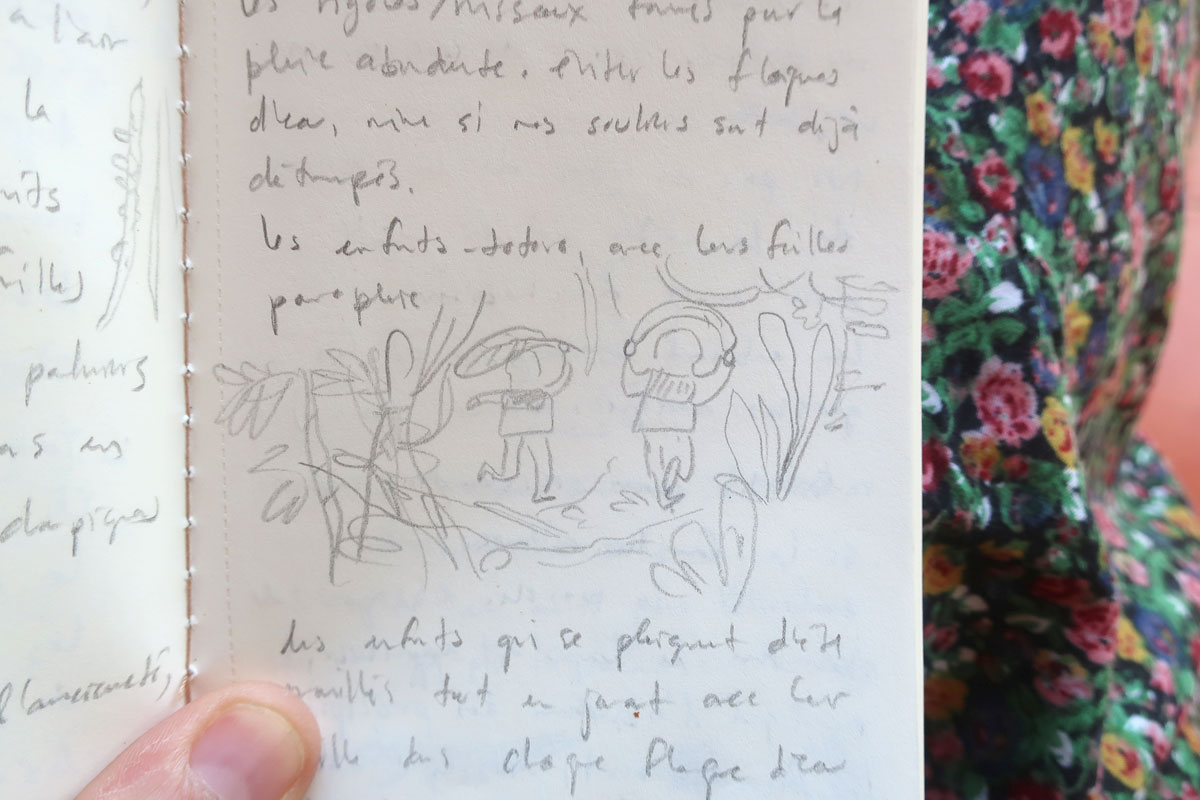 à l'air
la
palmiers
l'ancienneté,
les rigoles/ruisseaux formés par la
pluie abondante. éviter les flaques
d'eau, même si nos souliers sont déjà
détrempés.
les enfants-totoro, avec leurs feuilles
parapluie
des enfants qui se plaignent d'être
mouillés tout en jouant avec leur
dans chaque flaque d'eau